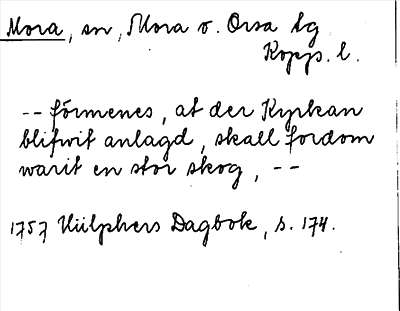 Mora, sn, Mora o. Orsa tg
Kopp. l.
-- förmenes, at der Kyrkan
blifwit anlagd, skall fordom
warit en stor skog, --
1757 Hülphers Dagbok, s. 174.